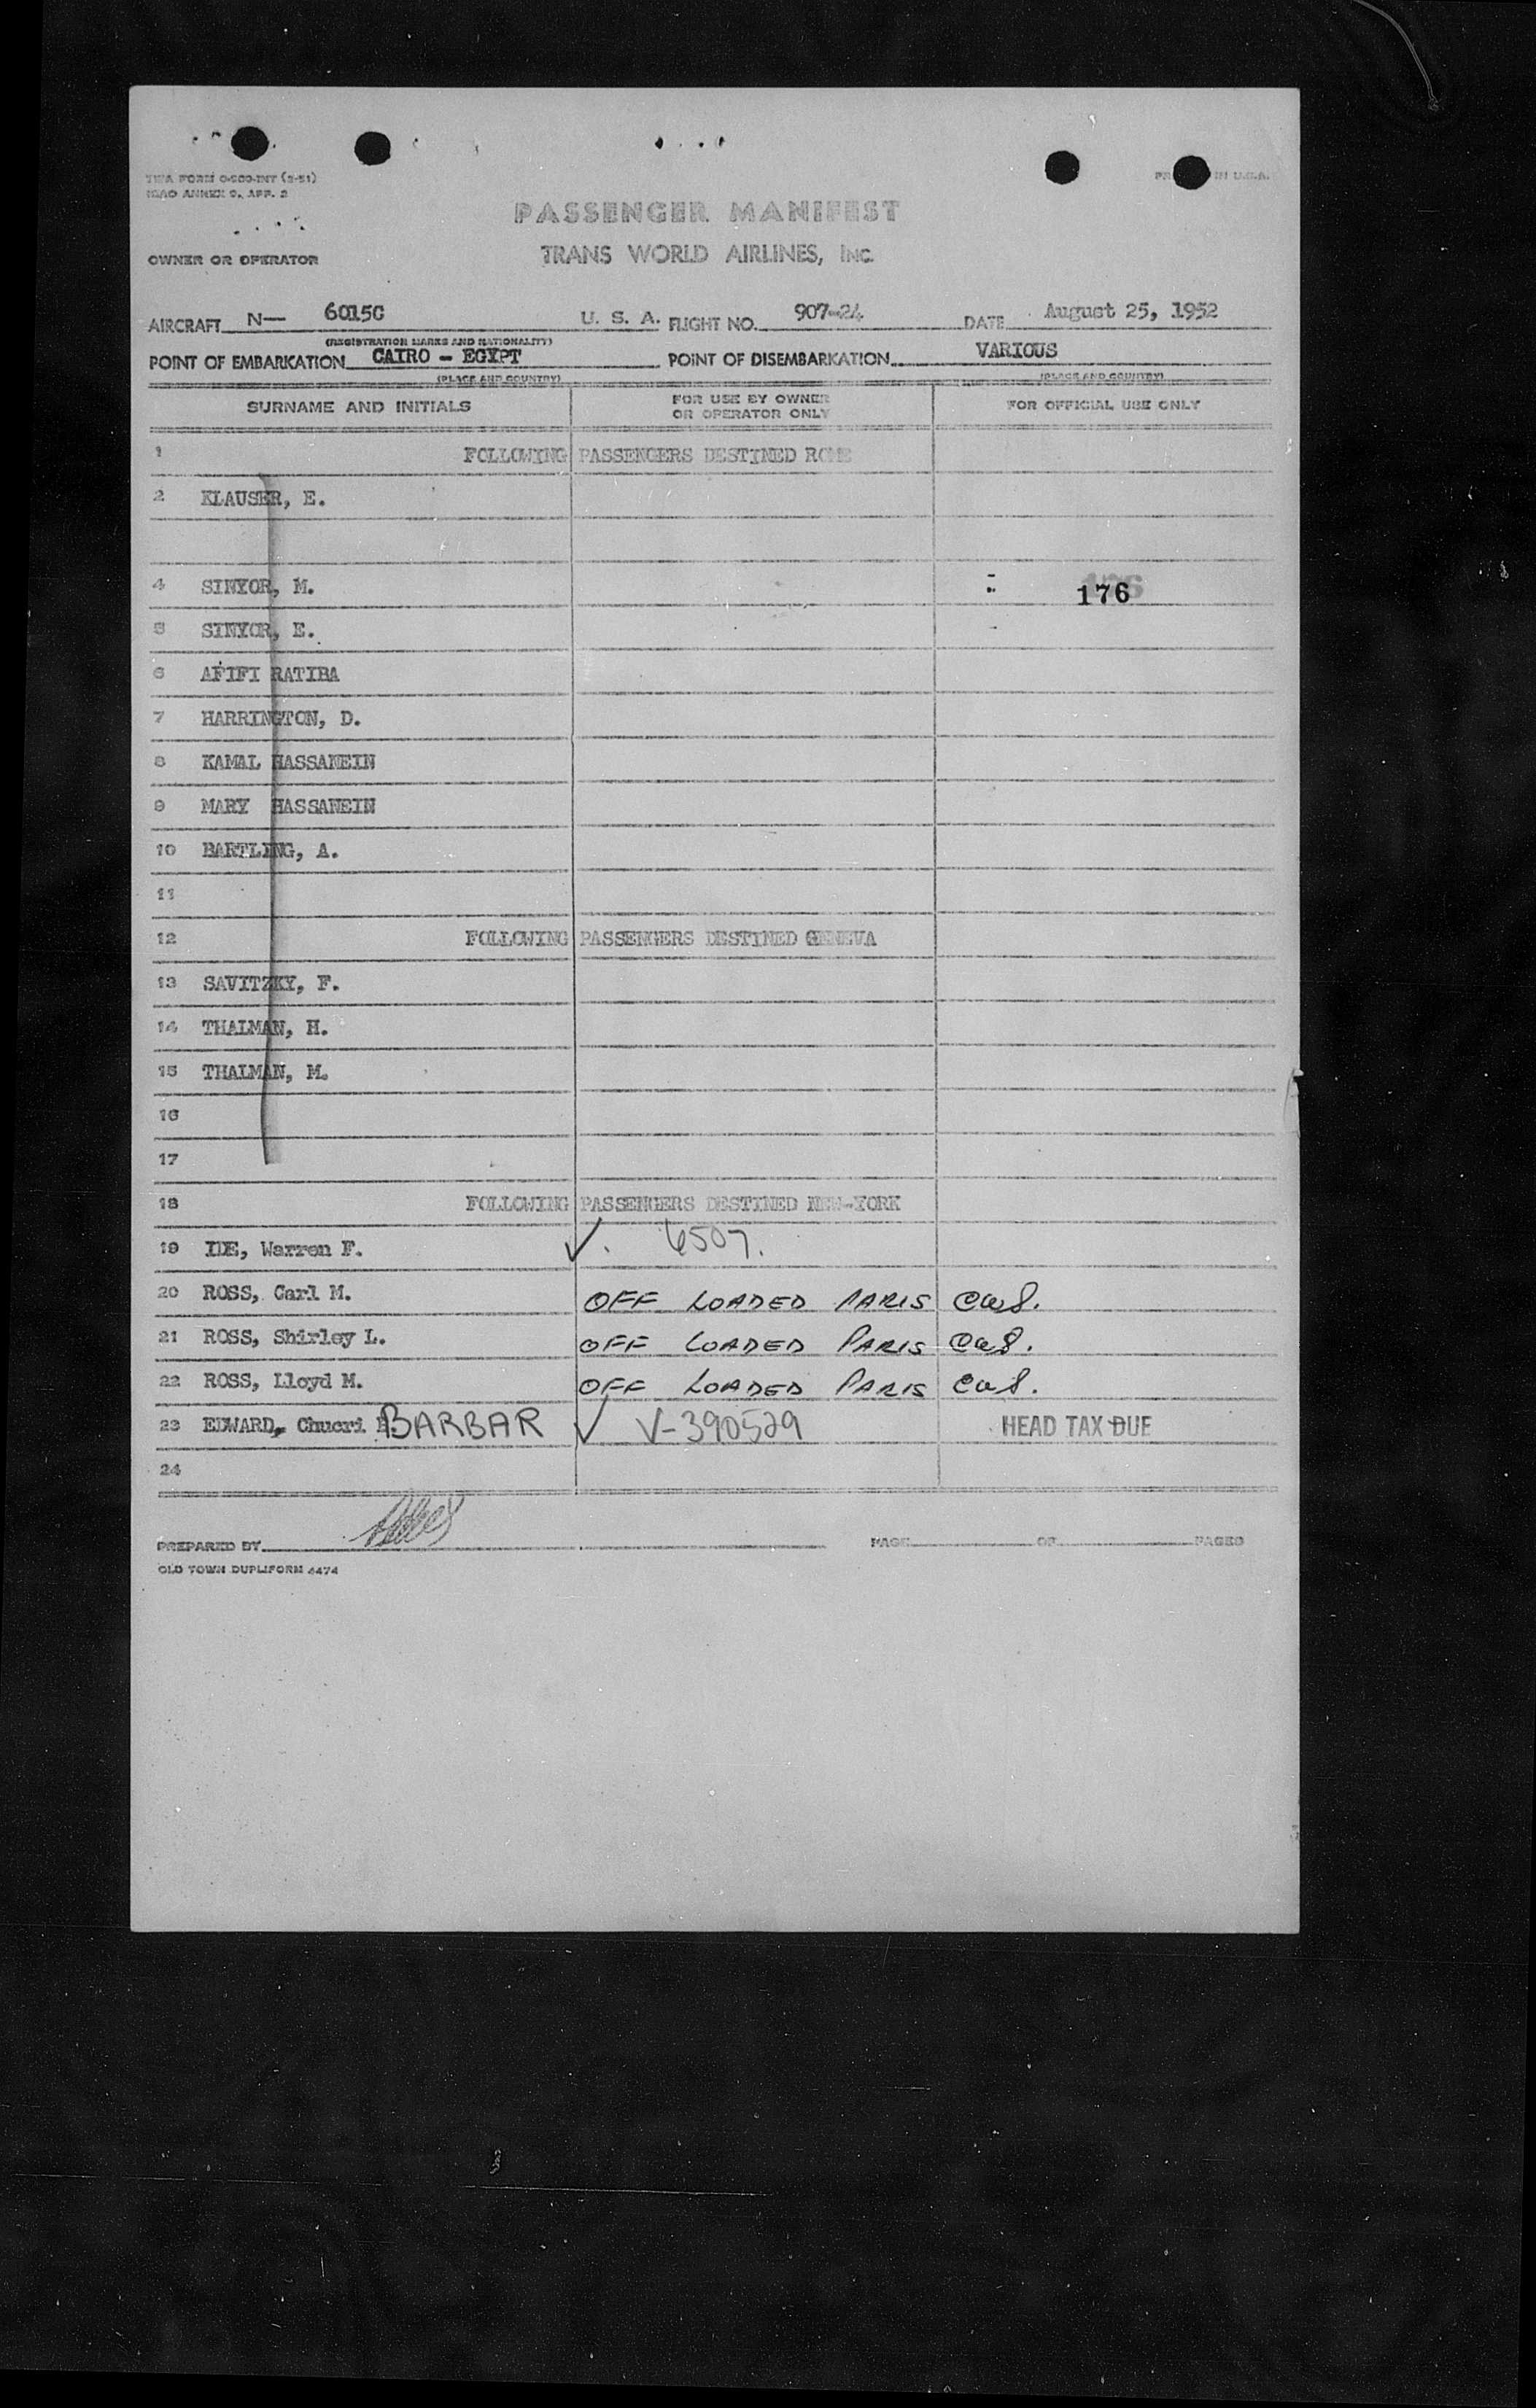 TWA FORM O-200-INT (5-51)
ICAO ANNEX 9, APP. 2
IN U.S.A.
PASSENGER MANIFEST
OWNER OR OPERATOR TRANS WORLD AIRLINES, INC.
AIRCRAFT N— 6015C U. S. A. FLIGHT NO. 907-24 DATE August 25, 1952
(REGISTRATION MARKS AND NATIONALITY)
POINT OF EMBARKATION CAIRO - EGYPT POINT OF DISEMBARKATION VARIOUS
(PLACE AND COUNTRY) (PLACE AND COUNTRY)
SURNAME AND INITIALS FOR USE BY OWNER OR OPERATOR ONLY FOR OFFICIAL USE ONLY
1 FOLLOWING PASSENGERS DESTINED ROME
2 KLAUSER, E.
4 SINYOR, M. 176
5 SINYOR, E.
6 AFIFI RATIBA
7 HARRINGTON, D.
8 KAMAL HASSANEIN
9 MARY HASSANEIN
10 BARTLING, A.
11
12 FOLLOWING PASSENGERS DESTINED GENEVA
13 SAVITZKY, F.
14 THALMAN, H.
15 THALMAN, M.
16
17
18 FOLLOWING PASSENGERS DESTINED NEW-YORK
19 IDE, Warren F. ✓. 6507.
20 ROSS, Carl M. OFF LOADED PARIS
21 ROSS, Shirley L. OFF LOADED PARIS
22 ROSS, Lloyd M. OFF LOADED PARIS
23 EDWARD, Chucri BARBAR ✓ V-390529 HEAD TAX DUE
24
PREPARED BY PAGE OF PAGES
OLD TOWN DUPLIFORM 4474